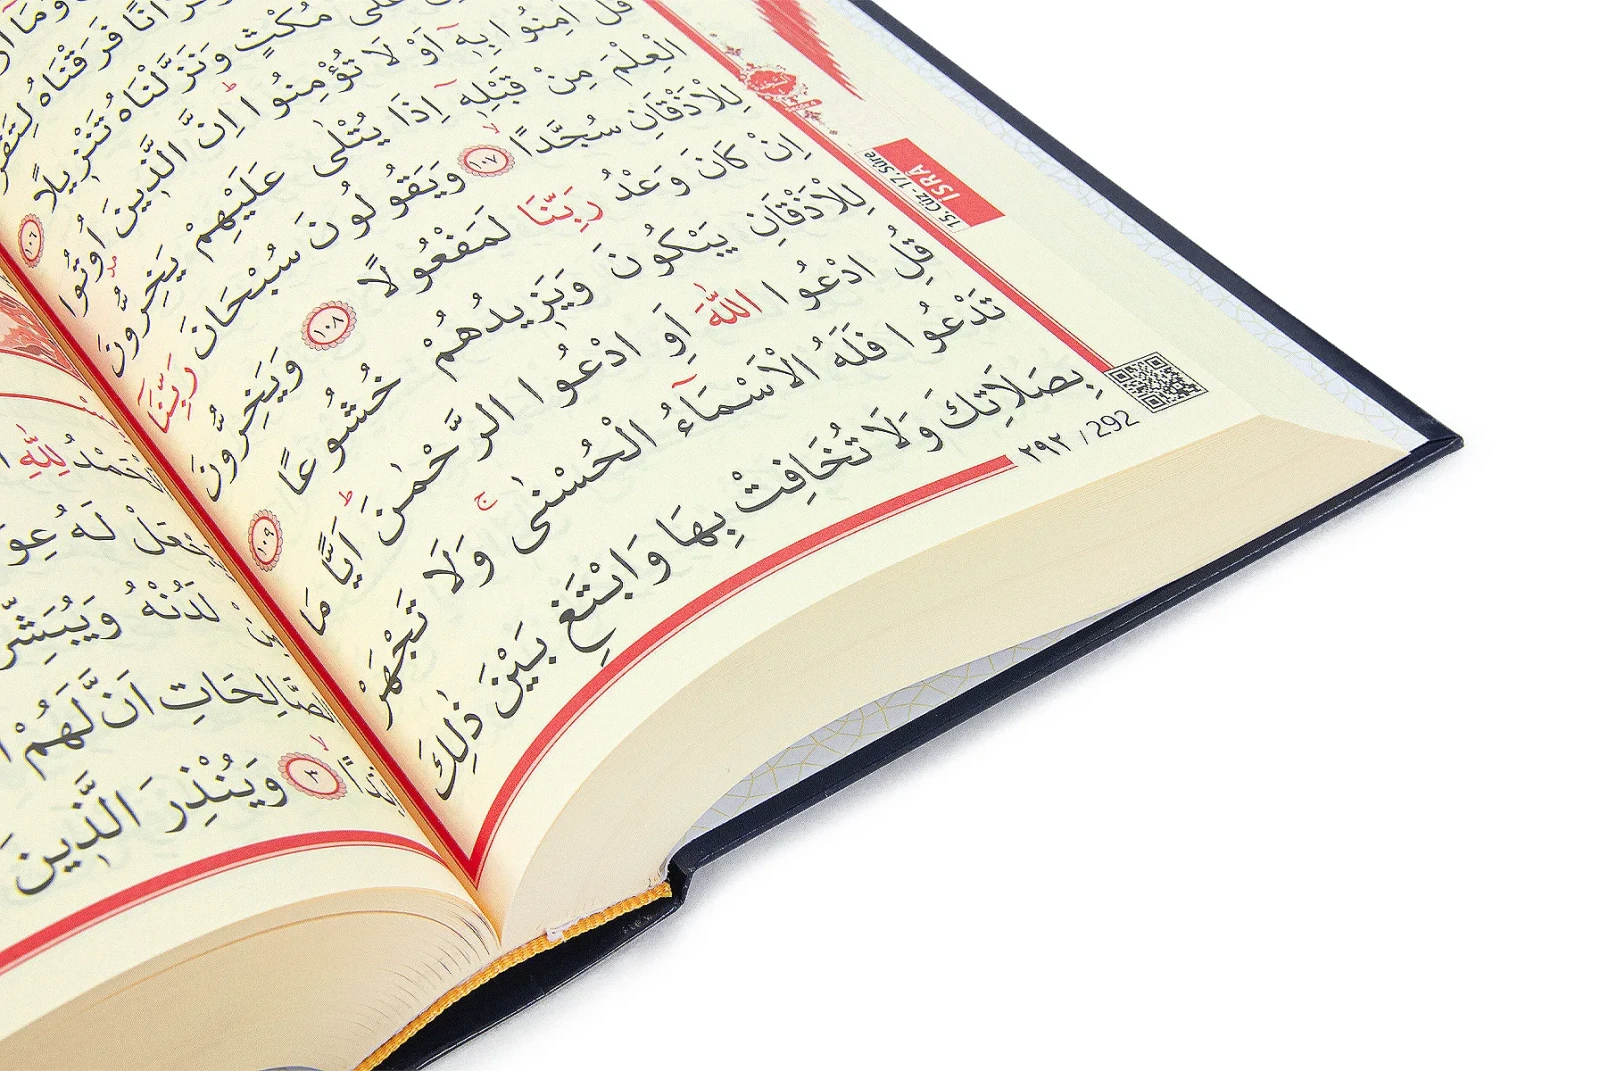 İSRÂ
15. Cüz - 17. Sûre
فَرَقْنَاهُ
عَلٰى مُكْثٍ وَنَزَّلْنَاهُ تَنْز۪يلًا ١٠٦
قُلْ اٰمِنُوا بِه۪ٓ اَوْ لَا تُؤْمِنُواۜ اِنَّ الَّذ۪ينَ اُو۫تُوا
الْعِلْمَ مِنْ قَبْلِه۪ٓ اِذَا يُتْلٰى عَلَيْهِمْ يَخِرُّونَ
لِلْاَذْقَانِ سُجَّدًاۙ ١٠٧ وَيَقُولُونَ سُبْحَانَ رَبِّنَٓا
اِنْ كَانَ وَعْدُ رَبِّنَا لَمَفْعُولًا ١٠٨ وَيَخِرُّونَ
لِلْاَذْقَانِ يَبْكُونَ وَيَز۪يدُهُمْ خُشُوعًا ١٠٩
قُلِ ادْعُوا اللّٰهَ اَوِ ادْعُوا الرَّحْمٰنَۜ اَيًّا مَا
تَدْعُوا فَلَهُ الْاَسْمَٓاءُ الْحُسْنٰىۚ وَلَا تَجْهَرْ
بِصَلَاتِكَ وَلَا تُخَافِتْ بِهَا وَابْتَغِ بَيْنَ ذٰلِكَ
٢٩٢ / 292
لِلّٰهِ
لَهُ
لَدُنْهُ وَيُبَشِّرَ
الصَّالِحَاتِ اَنَّ لَهُمْ
٣ وَيُنْذِرَ الَّذ۪ينَ